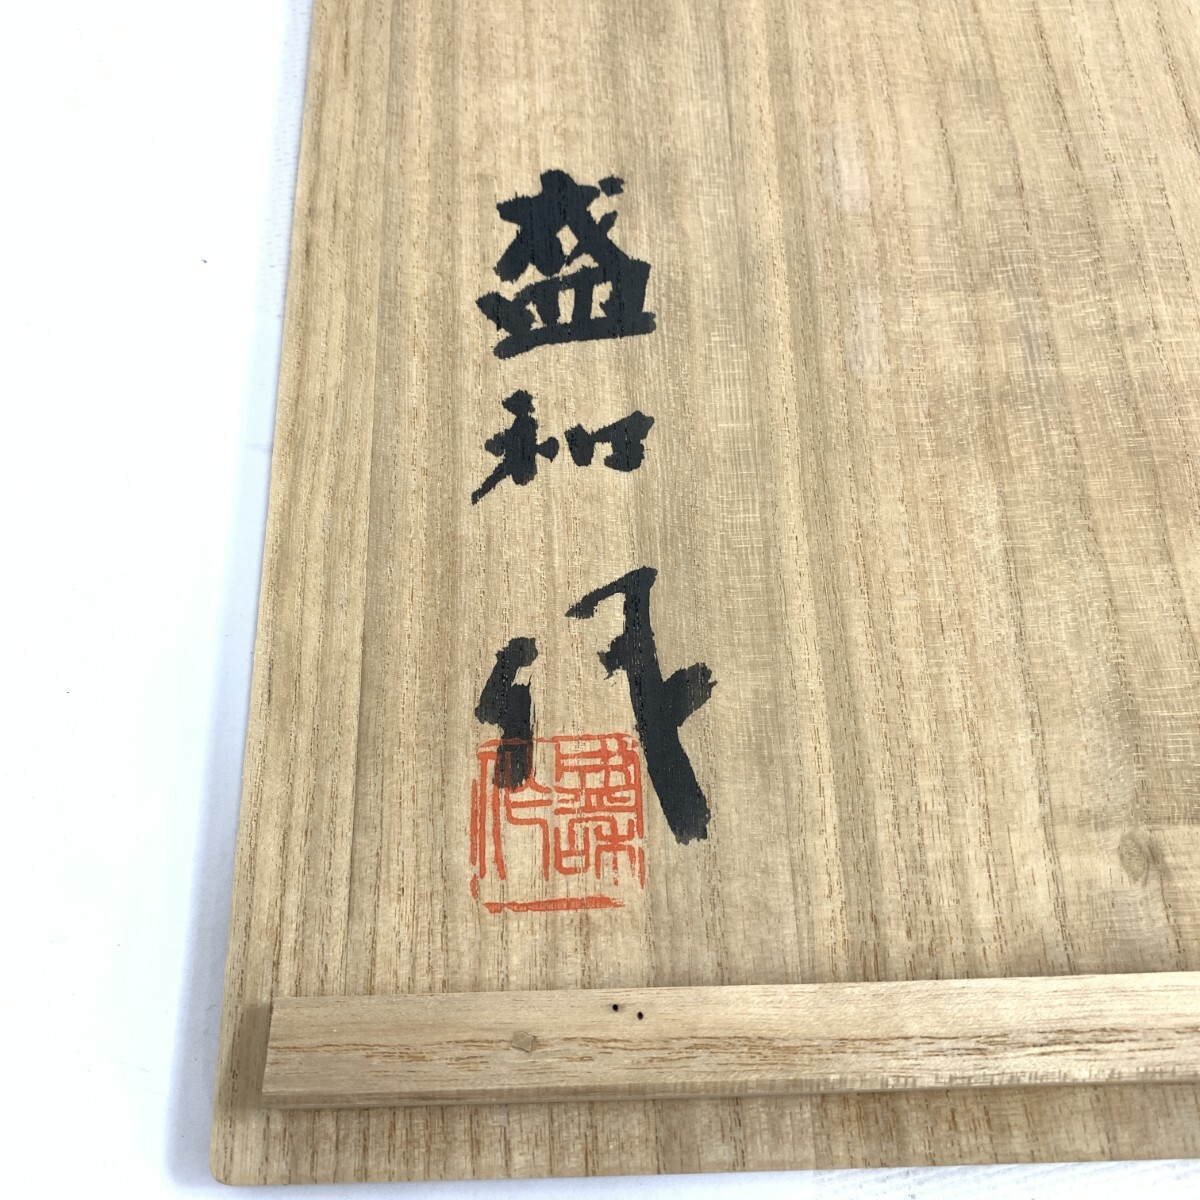 盛和作
盛和作